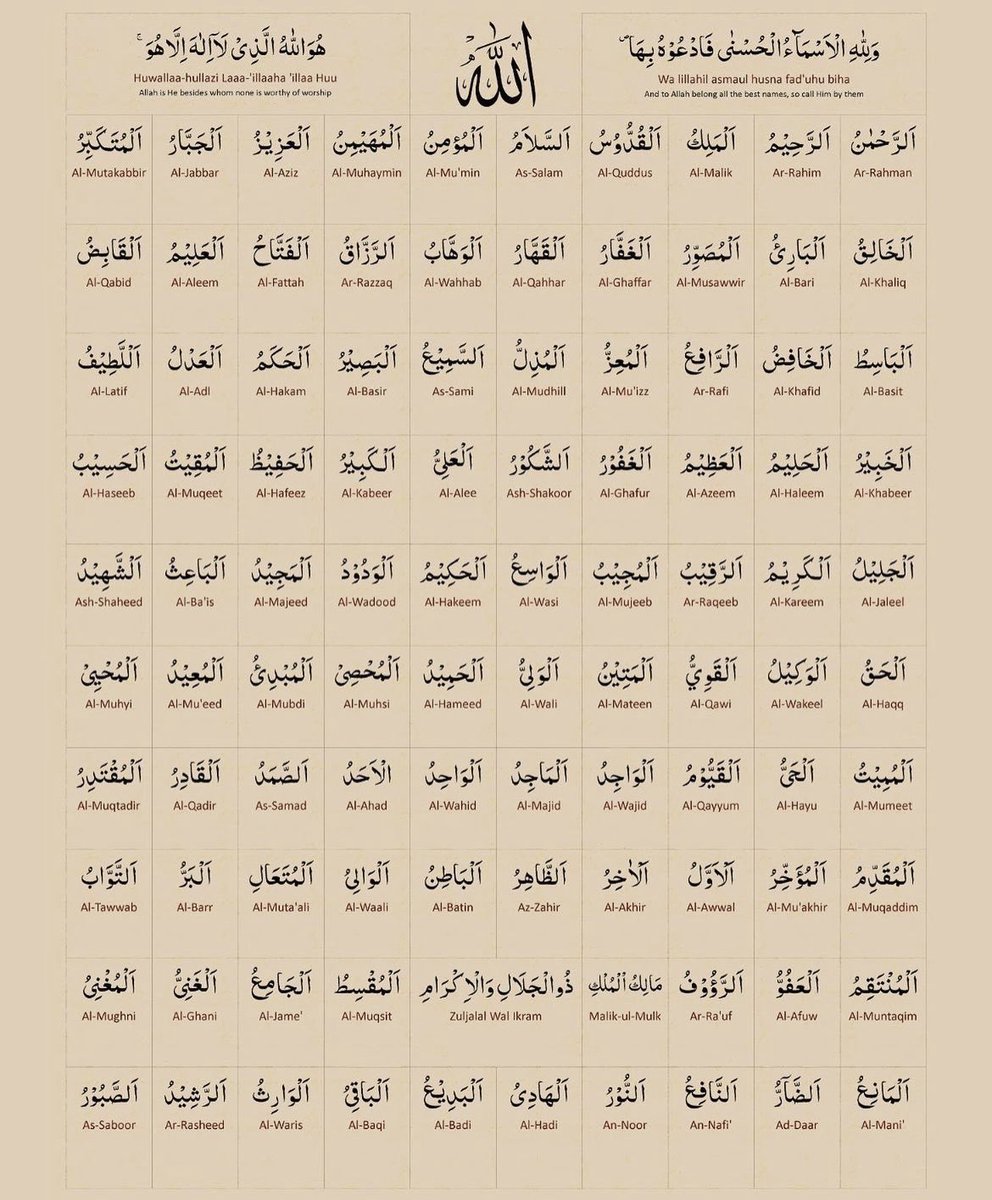 وَلِلّٰهِ الْاَسْمَآءُ الْحُسْنٰى فَادْعُوْهُ بِهَا ۖ
Wa lillahil asmaul husna fad'uhu biha
And to Allah belong all the best names, so call Him by them
اللّٰه
هُوَاللّٰهُ الَّذِىْ لَآ اِلٰهَ اِلَّا هُوَ ۚ
Huwallaa-hullazi Laaa-'illaaha 'illaa Huu
Allah is He besides whom none is worthy of worship
اَلرَّحْمٰنُ
Ar-Rahman
اَلرَّحِيْمُ
Ar-Rahim
اَلْمَلِكُ
Al-Malik
اَلْقُدُّوْسُ
Al-Quddus
اَلسَّلَامُ
As-Salam
اَلْمُؤْمِنُ
Al-Mu'min
اَلْمُهَيْمِنُ
Al-Muhaymin
اَلْعَزِيْزُ
Al-Aziz
اَلْجَبَّارُ
Al-Jabbar
اَلْمُتَكَبِّرُ
Al-Mutakabbir
اَلْخَالِقُ
Al-Khaliq
اَلْبَارِئُ
Al-Bari
اَلْمُصَوِّرُ
Al-Musawwir
اَلْغَفَّارُ
Al-Ghaffar
اَلْقَهَّارُ
Al-Qahhar
اَلْوَهَّابُ
Al-Wahhab
اَلرَّزَّاقُ
Ar-Razzaq
اَلْفَتَّاحُ
Al-Fattah
اَلْعَلِيْمُ
Al-Aleem
اَلْقَابِضُ
Al-Qabid
اَلْبَاسِطُ
Al-Basit
اَلْخَافِضُ
Al-Khafid
اَلرَّافِعُ
Ar-Rafi
اَلْمُعِزُّ
Al-Mu'izz
اَلْمُذِلُّ
Al-Mudhill
اَلسَّمِيْعُ
As-Sami
اَلْبَصِيْرُ
Al-Basir
اَلْحَكَمُ
Al-Hakam
اَلْعَدْلُ
Al-Adl
اَللَّطِيْفُ
Al-Latif
اَلْخَبِيْرُ
Al-Khabeer
اَلْحَلِيْمُ
Al-Haleem
اَلْعَظِيْمُ
Al-Azeem
اَلْغَفُوْرُ
Al-Ghafur
اَلشَّكُوْرُ
Ash-Shakoor
اَلْعَلِىُّ
Al-Alee
اَلْكَبِيْرُ
Al-Kabeer
اَلْحَفِيْظُ
Al-Hafeez
اَلْمُقِيْتُ
Al-Muqeet
اَلْحَسِيْبُ
Al-Haseeb
اَلْجَلِيْلُ
Al-Jaleel
اَلْكَرِيْمُ
Al-Kareem
اَلرَّقِيْبُ
Ar-Raqeeb
اَلْمُجِيْبُ
Al-Mujeeb
اَلْوَاسِعُ
Al-Wasi
اَلْحَكِيْمُ
Al-Hakeem
اَلْوَدُوْدُ
Al-Wadood
اَلْمَجِيْدُ
Al-Majeed
اَلْبَاعِثُ
Al-Ba'is
اَلشَّهِيْدُ
Ash-Shaheed
اَلْحَقُّ
Al-Haqq
اَلْوَكِيْلُ
Al-Wakeel
اَلْقَوِيُّ
Al-Qawi
اَلْمَتِيْنُ
Al-Mateen
اَلْوَلِىُّ
Al-Wali
اَلْحَمِيْدُ
Al-Hameed
اَلْمُحْصِىْ
Al-Muhsi
اَلْمُبْدِئُ
Al-Mubdi
اَلْمُعِيْدُ
Al-Mu'eed
اَلْمُحْيِىْ
Al-Muhyi
اَلْمُمِيْتُ
Al-Mumeet
اَلْحَىُّ
Al-Hayu
اَلْقَيُّوْمُ
Al-Qayyum
اَلْوَاجِدُ
Al-Wajid
اَلْمَاجِدُ
Al-Majid
اَلْوَاحِدُ
Al-Wahid
الْاَحَدُ
Al-Ahad
اَلصَّمَدُ
As-Samad
اَلْقَادِرُ
Al-Qadir
اَلْمُقْتَدِرُ
Al-Muqtadir
اَلْمُقَدِّمُ
Al-Muqaddim
اَلْمُؤَخِّرُ
Al-Mu'akhir
اَلْاَوَّلُ
Al-Awwal
اَلْاٰخِرُ
Al-Akhir
اَلظَّاهِرُ
Az-Zahir
اَلْبَاطِنُ
Al-Batin
اَلْوَالِىُ
Al-Waali
اَلْمُتَعَالِ
Al-Muta'ali
اَلْبَرُّ
Al-Barr
اَلتَّوَّابُ
Al-Tawwab
اَلْمُنْتَقِمُ
Al-Muntaqim
اَلْعَفُوُّ
Al-Afuw
اَلرَّؤُوْفُ
Ar-Ra'uf
مَالِكُ الْمُلْكِ
Malik-ul-Mulk
ذُوالْجَلَالِ وَالْاِكْرَامِ
Zuljalal Wal Ikram
اَلْمُقْسِطُ
Al-Muqsit
اَلْجَامِعُ
Al-Jame'
اَلْغَنِىُّ
Al-Ghani
اَلْمُغْنِىُ
Al-Mughni
اَلْمَانِعُ
Al-Mani'
اَلضَّآرُّ
Ad-Daar
اَلنَّافِعُ
An-Nafi'
اَلنُّوْرُ
An-Noor
اَلْهَادِىُ
Al-Hadi
اَلْبَدِيْعُ
Al-Badi
اَلْبَاقِىُ
Al-Baqi
اَلْوَارِثُ
Al-Waris
اَلرَّشِيْدُ
Ar-Rasheed
اَلصَّبُوْرُ
As-Saboor